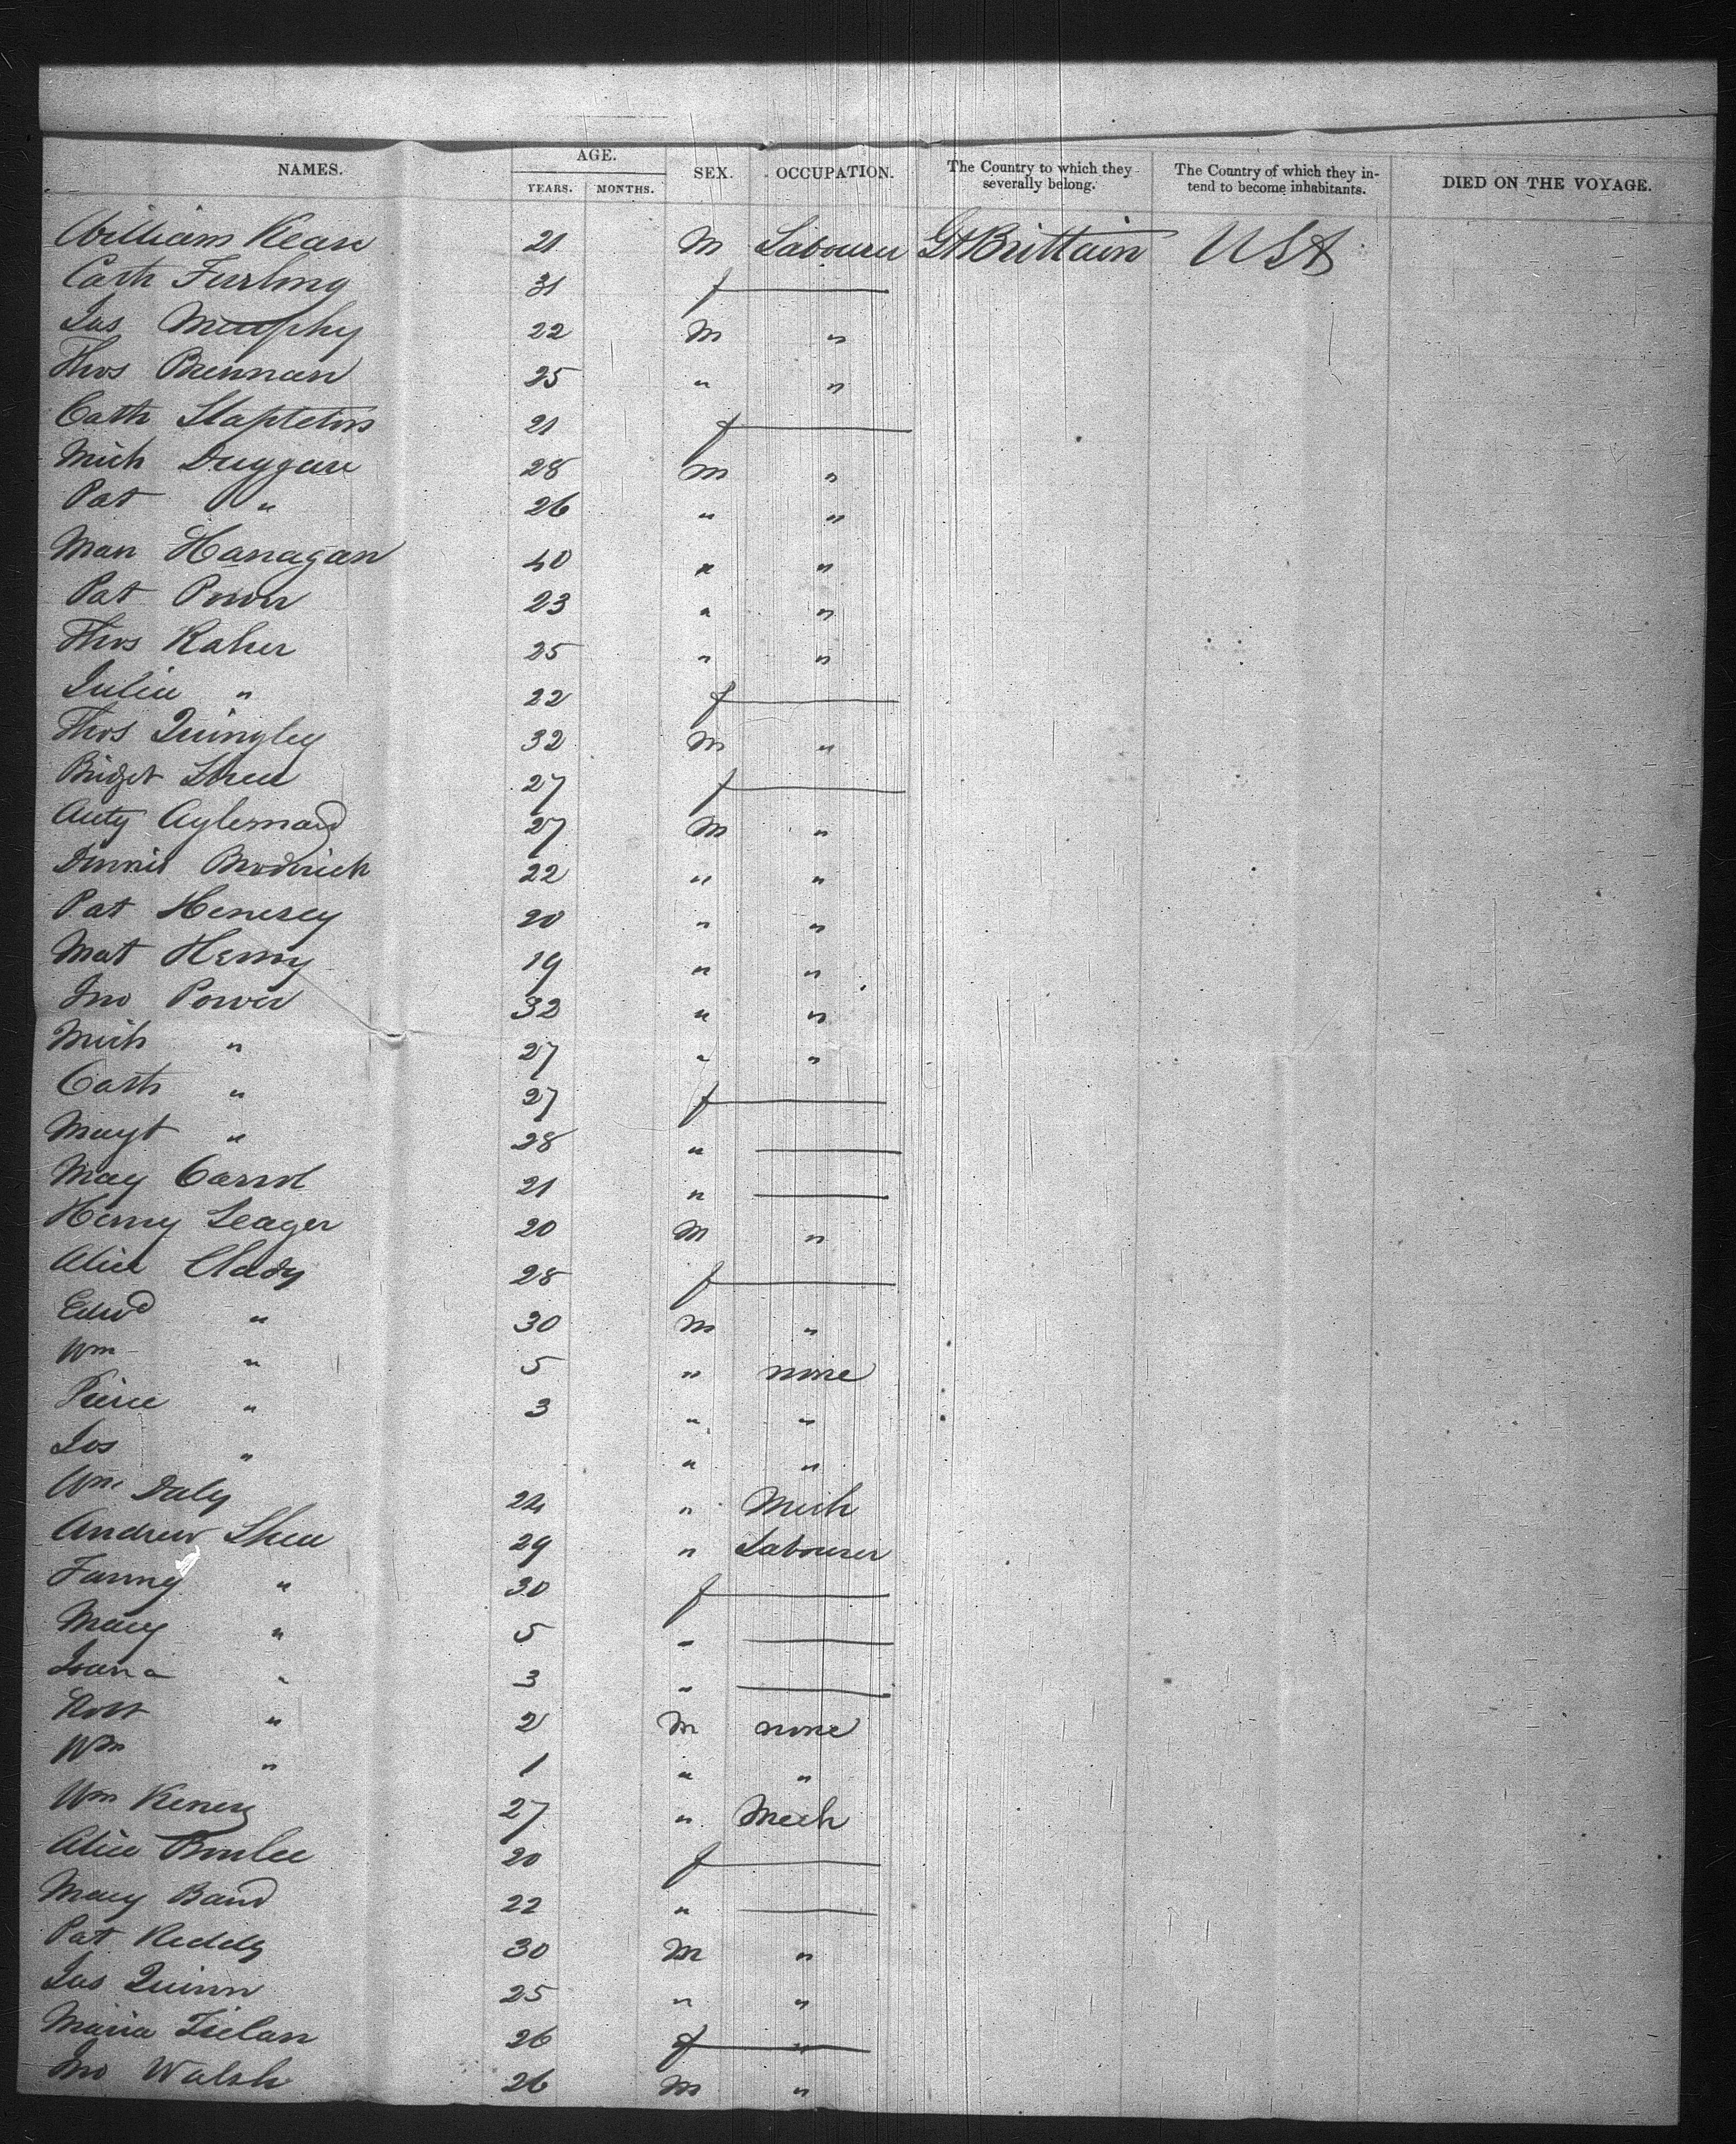 NAMES. AGE. SEX. OCCUPATION. The Country to which they severally belong. The Country of which they intend to become inhabitants. DIED ON THE VOYAGE.
YEARS. MONTHS.
William Kean 21 M Labourer Gt Brittain USA
Cath Furlong 31 f
Jas Murphy 22 M "
Thos Brennan 25 " "
Cath Stapleton 21 f
Mich Duggan 28 M "
Pat " 26 " "
Man Hanagan 40 " "
Pat Power 23 " "
Thos Raher 25 " "
Julia " 22 f
Thos Quingley 32 M "
Bridget Shea 27 f
Anty Aylemard 27 M "
Dennis Broderick 22 " "
Pat Henesey 20 " "
Mat Henry 19 " "
Jno Power 32 " "
Mich " 27 " "
Cath " 27 f
Margt " 28 "
May Carrol 21 "
Henry Seager 20 M "
Alice Clady 28 f
Edwd " 30 M "
Wm " 5 " none
Pierce " 3 " "
Jos " " "
Wm Daly 24 " Mech
Andrew Shea 29 " Labourer
Fanny " 30 f
Mary " 5 "
Joana " 3 "
Robt " 2 M none
Wm " 1 " "
Wm Kenery 27 " Mech
Alice 20 f
Mary Band 22 "
Pat Reddy 30 M "
Jas Quinn 25 " "
Maria Fielan 26 f "
Jno Walsh 26 M "